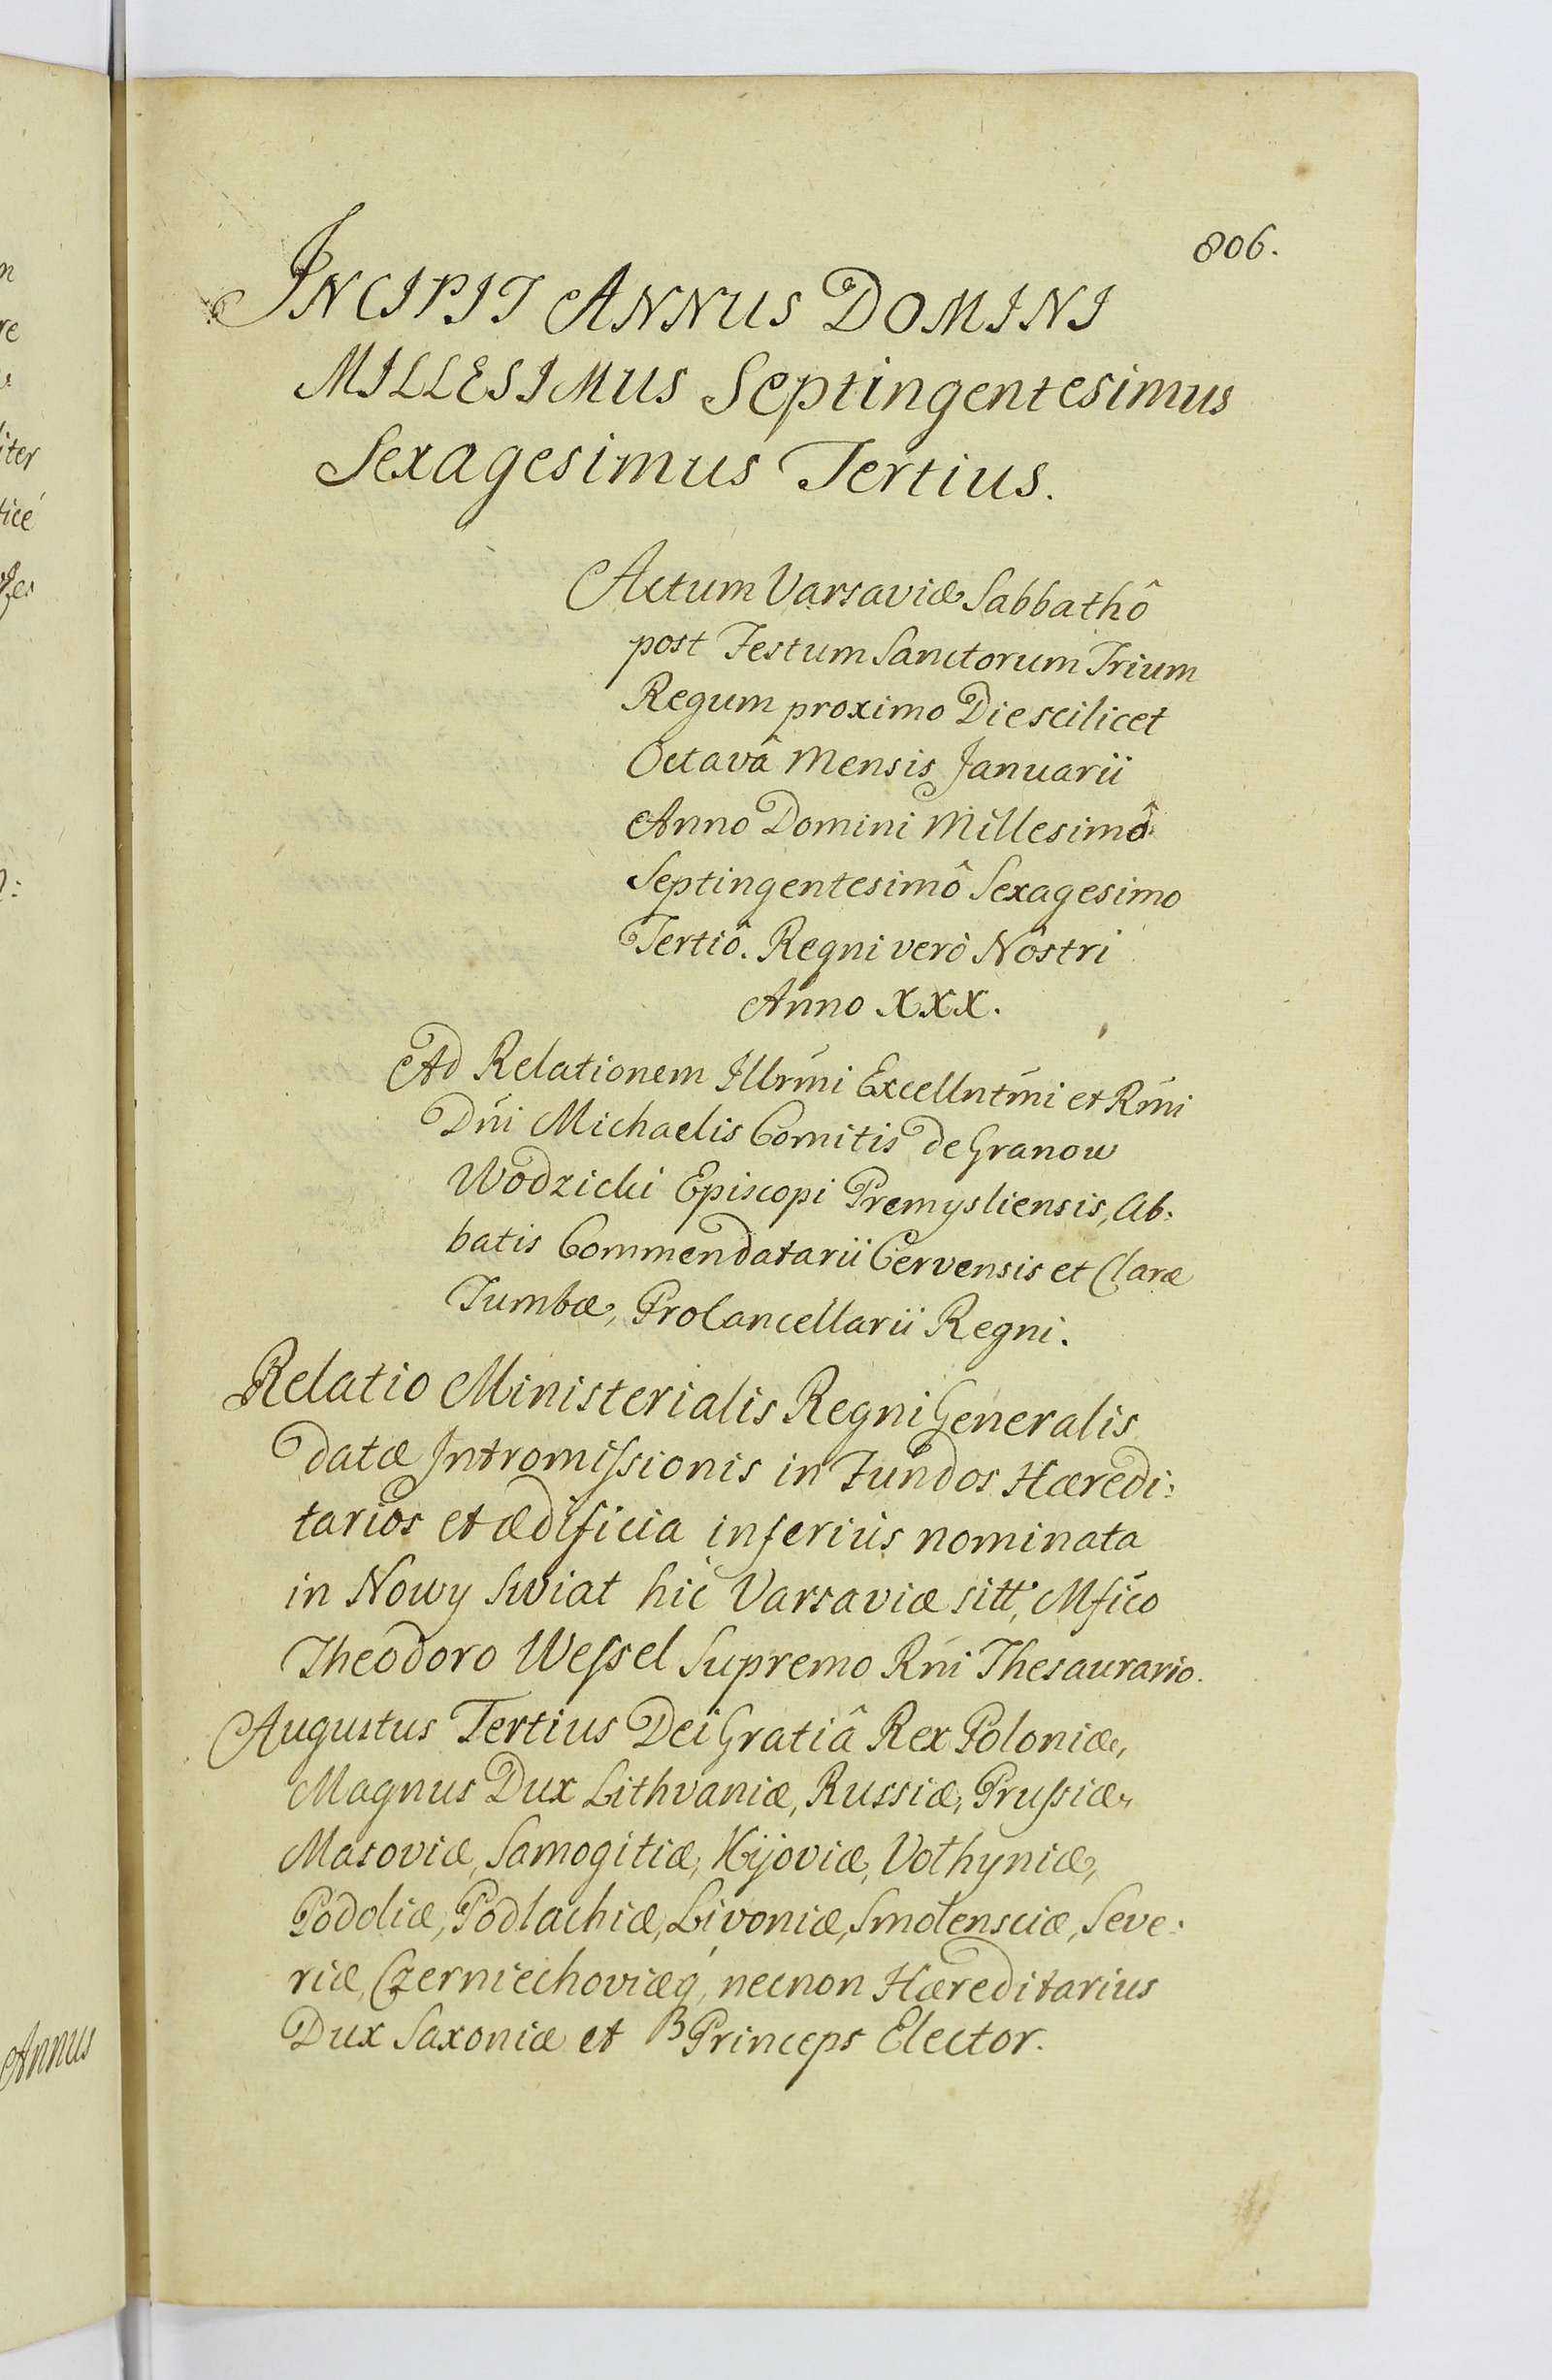 806.
INCIPIT ANNUS DOMINI
MILLESIMUS Septingentesimus
Sexagesimus Tertius.
Actum Varsaviæ Sabbathô
post Festum Sanctorum Trium
Regum proximo Die scilicet
Octavâ Mensis Januarii
Anno Domini Millesimô
Septingentesimô Sexagesimo
Tertiô. Regni verò Nostri
Anno XXX.
Ad Relationem Illrmi Excellntmi et Rmi
Dni Michaelis Comitis de Granow
Wodzicki Episcopi Premysliensis, Ab:
batis Commendatarii Cervensis et Claræ
Tumbæ, ProCancellarii Regni.
Relatio Ministerialis Regni Generalis
datæ Intromiſsionis in Fundos Hæredi:
tarios et ædificia inferiùs nominata
in Nowy Swiat hic Varsaviæ sitt, Mfico
Theodoro Weſsel Supremo Rni Thesaurario.
Augustus Tertius Dei Gratiâ Rex Poloniæ,
Magnus Dux Lithvaniæ, Russiæ, Pruſsiæ,
Masoviæ, Samogitiæ, Kijoviæ, Volhyniæ,
Podoliæ, Podlachiæ, Livoniæ, Smolensciæ, Seve:
riæ, Czerniechoviæq́, necnon Hæreditarius
Dux Saxoniæ et Princeps Elector.
iter
Annus